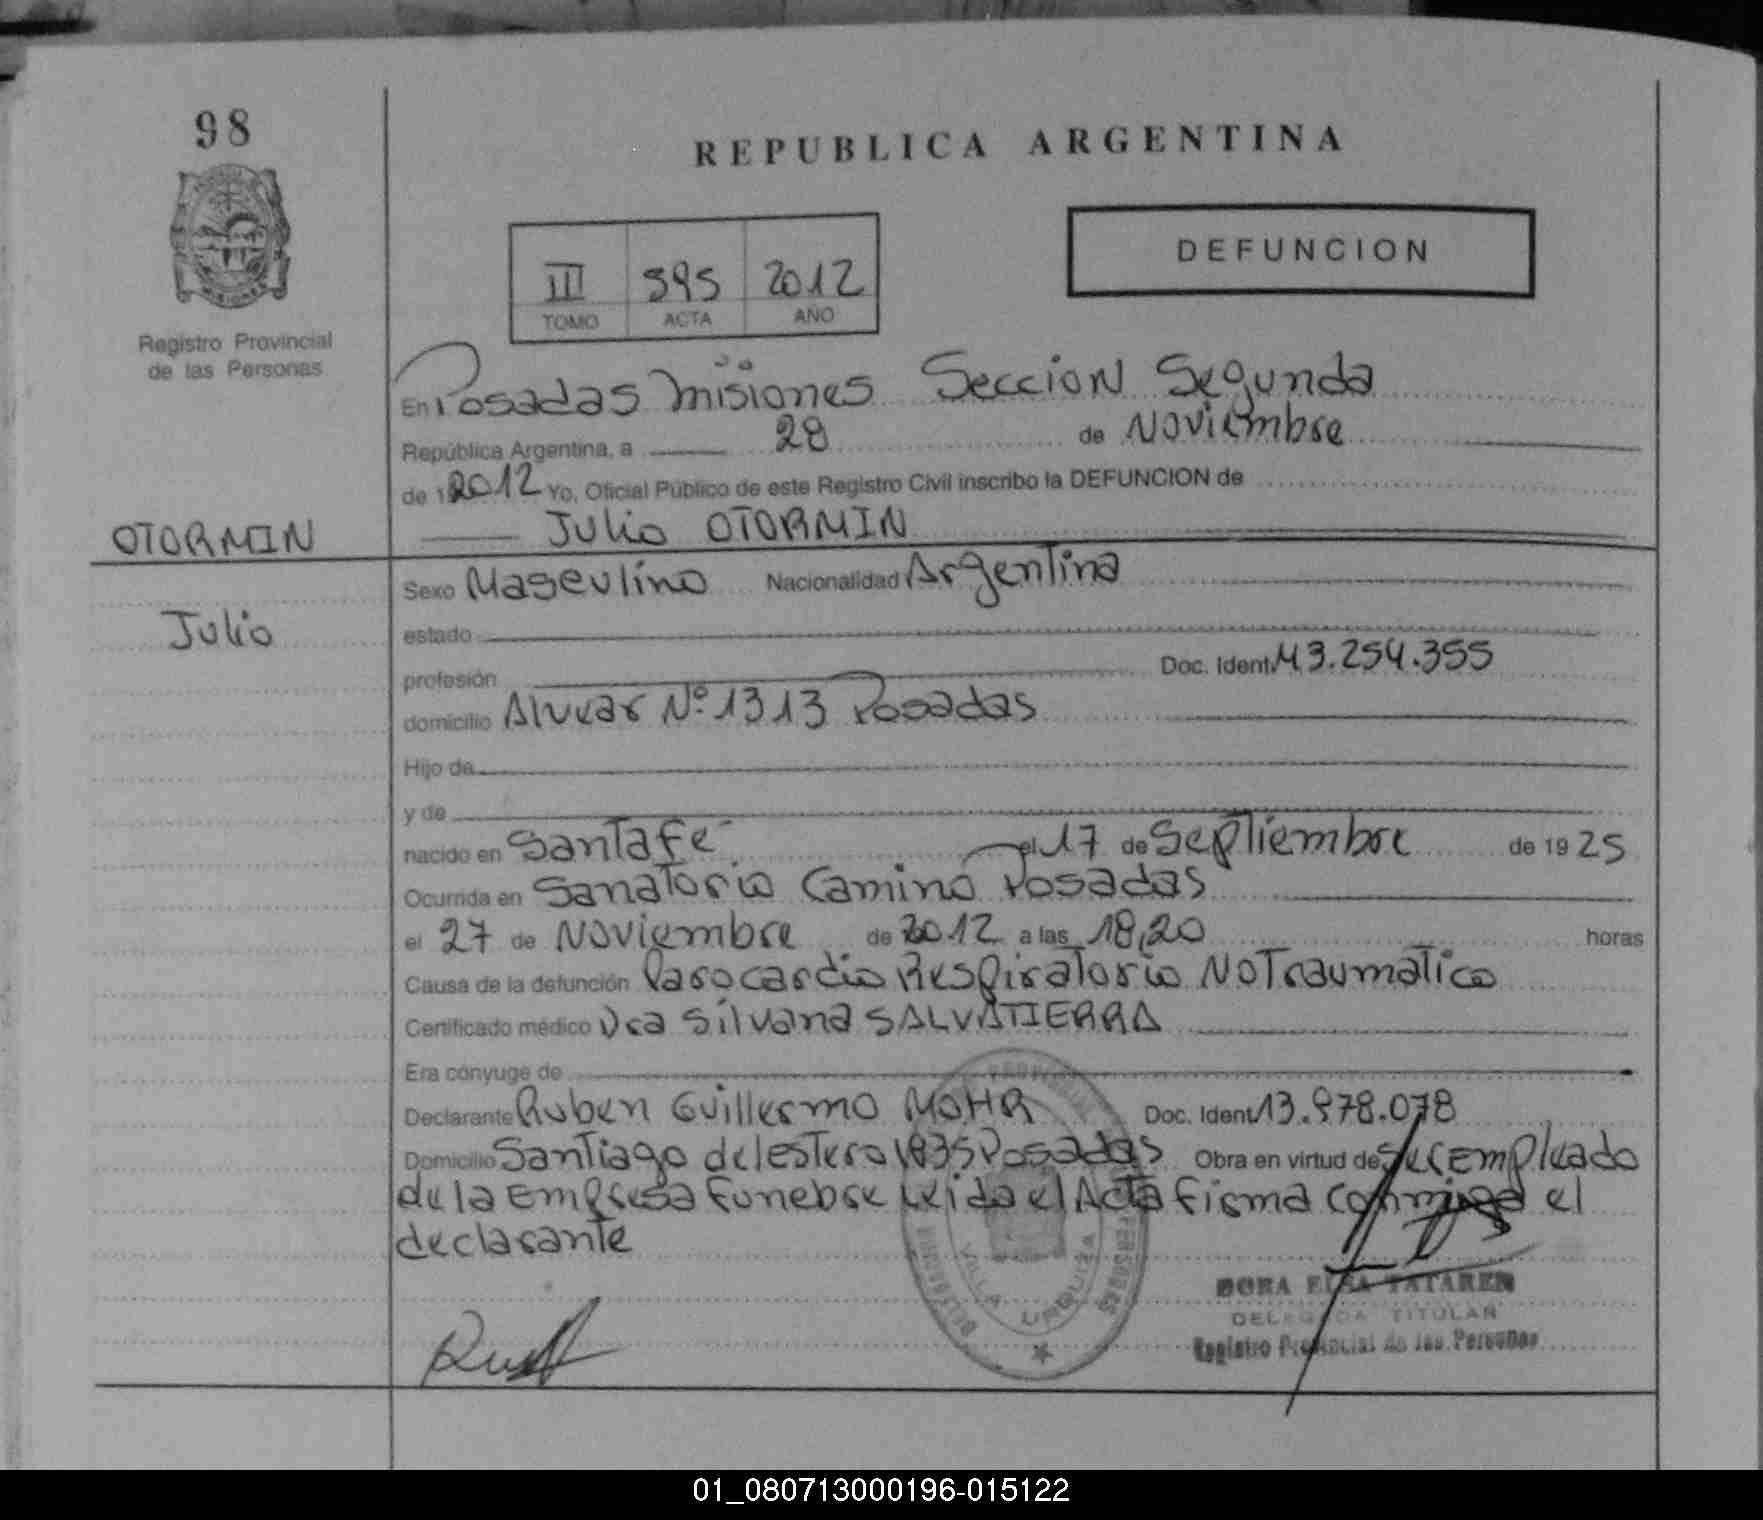 98
REPUBLICA ARGENTINA
DEFUNCION
III 595 2012
TOMO ACTA AÑO
Registro Provincial
de las Personas
MISIONES
En Posadas Misiones Seccion Segunda
República Argentina, a 28 de Noviembre
de 1 2012 Yo, Oficial Público de este Registro Civil inscribo la DEFUNCION de
OTORMIN
Julio OTORMIN
Sexo Masculino Nacionalidad Argentina
Julio
estado
profesión Doc. Ident. M3.254.355
domicilio Alvear Nº 1313 Posadas
Hijo de
y de
nacido en Santa fé el 17 de Septiembre de 1925
Ocurrida en Sanatorio Camino Posadas
el 27 de Noviembre de 2012 a las 18,20 horas
Causa de la defunción Parocardio Respiratorio No Traumatico
Certificado médico Dra Silvana SALVATIERRA
Era cónyuge de
Declarante Ruben Guillermo MOHR Doc. Ident. 13.978.078
Domicilio Santiago del estero 1835 Posadas Obra en virtud de ser empleado
de la Empresa funebre Leida el Acta firma conmigo el
declarante
VILLA URQUIZA
DORA ELSA TATAREN
DELEGADA TITULAR
Registro Provincial de las Personas
01_080713000196-015122